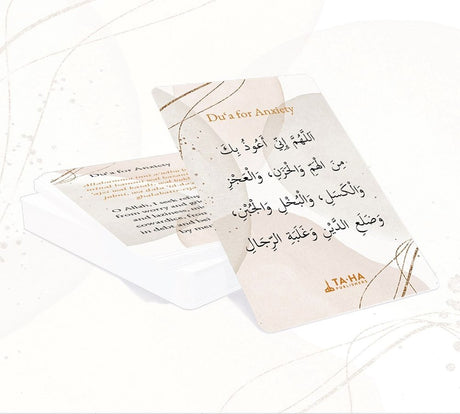 Du'a for Anxiety
اَللّٰهُمَّ إِنِّيْ أَعُوْذُ بِكَ
مِنَ الْهَمِّ وَالْحَزَنِ، وَالْعَجْزِ
وَالْكَسَلِ، وَالْبُخْلِ وَالْجُبْنِ،
وَضَلَعِ الدَّيْنِ وَغَلَبَةِ الرِّجَالِ
TA-HA
PUBLISHERS
Du'a for Anxiety
O Allah, I seek
from worry and
and laziness
cowardice, from
in debt and
by